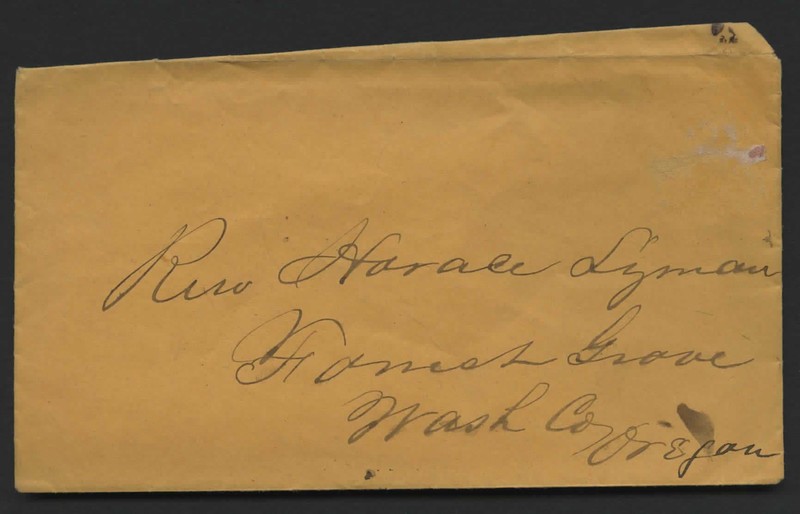 Rev Horace Lyman
Forrest Grove
Wash Co
Oregon